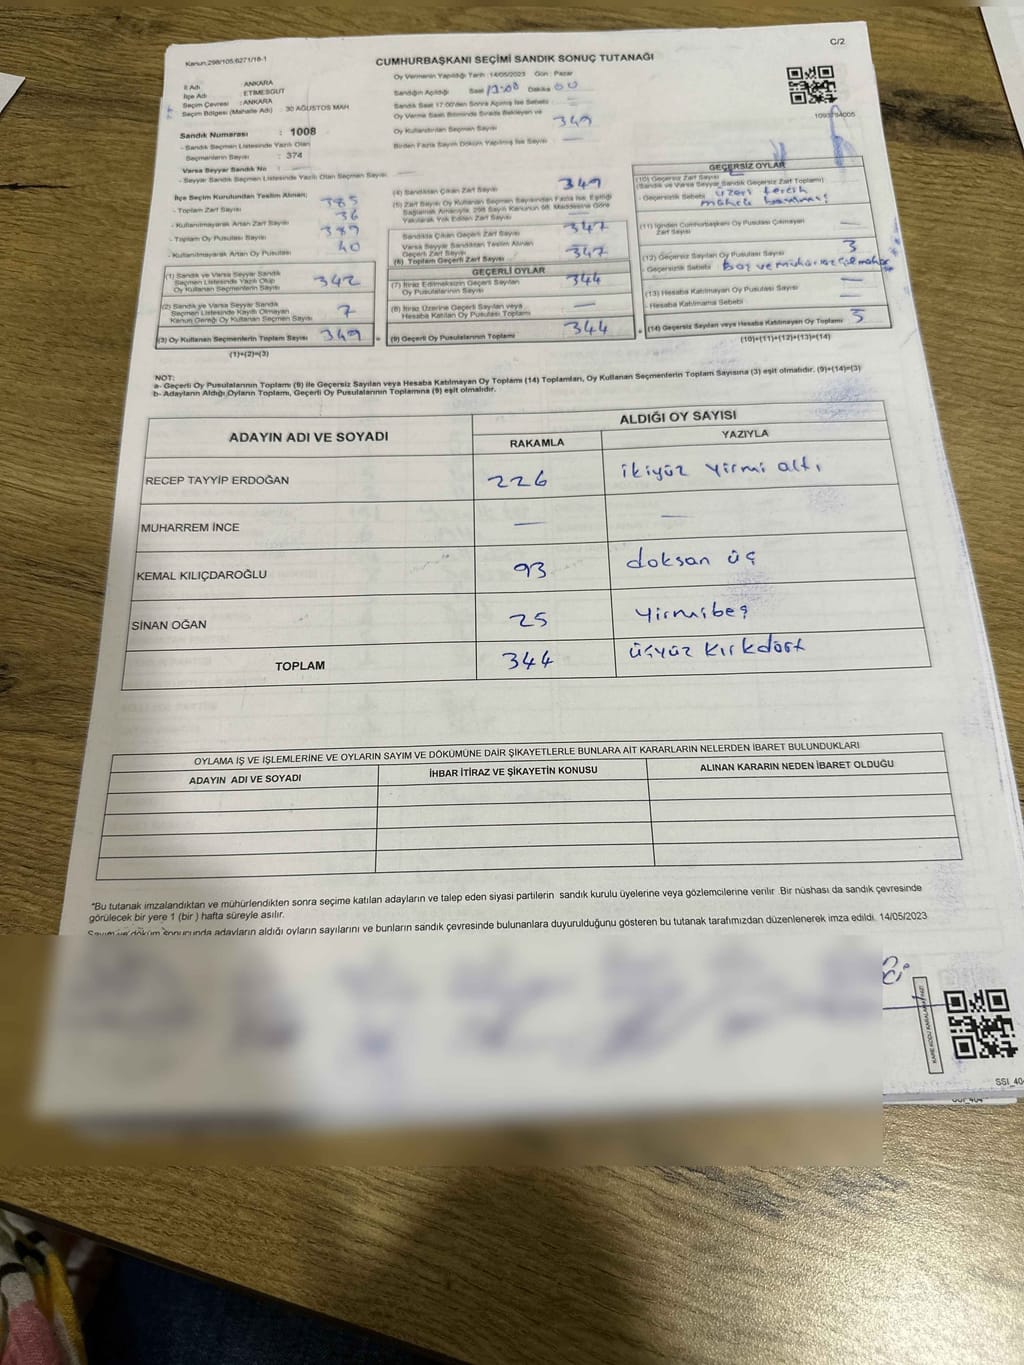 Kanun:298/105:6271/18-1
C/2
CUMHURBAŞKANI SEÇİMİ SANDIK SONUÇ TUTANAĞI
İl Adı : ANKARA
İlçe Adı : ETİMESGUT
Seçim Çevresi : ANKARA
Seçim Bölgesi (Mahalle Adı) 30 AĞUSTOS MAH
Sandık Numarası : 1008
- Sandık Seçmen Listesinde Yazılı Olan
Seçmenlerin Sayısı : 374
Varsa Seyyar Sandık No :
- Seyyar Sandık Seçmen Listesinde Yazılı Olan Seçmen Sayısı
Oy Vermenin Yapıldığı Tarih :14/05/2023 Gün : Pazar
Sandığın Açıldığı Saat 17:00 Dakika 00
Sandık Saat 17:00'den Sonra Açılmış İse Sebebi
Oy Verme Saati Bitiminde Sırada Bekleyen ve
Oy Kullandırılan Seçmen Sayısı 349
Birden Fazla Sayım Döküm Yapılmış İse Sayısı —
İlçe Seçim Kurulundan Teslim Alınan;
- Toplam Zarf Sayısı 385
- Kullanılmayarak Artan Zarf Sayısı 36
- Toplam Oy Pusulası Sayısı 389
- Kullanılmayarak Artan Oy Pusulası 40
(1) Sandık ve Varsa Seyyar Sandık
Seçmen Listesinde Yazılı Olup
Oy Kullanan Seçmenlerin Sayısı 342
(2) Sandık ve Varsa Seyyar Sandık
Seçmen Listesinde Kayıtlı Olmayan
Kanun Gereği Oy Kullanan Seçmen Sayısı 7
(3) Oy Kullanan Seçmenlerin Toplam Sayısı 349
(1)+(2)=(3)
(4) Sandıktan Çıkan Zarf Sayısı 349
(5) Zarf Sayısı Oy Kullanan Seçmen Sayısından Fazla İse, Eşitliği
Sağlamak Amacıyla, 298 Sayılı Kanunun 98. Maddesine Göre
Yakılarak Yok Edilen Zarf Sayısı —
Sandıkta Çıkan Geçerli Zarf Sayısı 347
Varsa Seyyar Sandıktan Teslim Alınan
Geçerli Zarf Sayısı
(6) Toplam Geçerli Zarf Sayısı 347
GEÇERLİ OYLAR
(7) İtiraz Edilmeksizin Geçerli Sayılan
Oy Pusulalarının Sayısı 344
(8) İtiraz Üzerine Geçerli Sayılan veya
Hesaba Katılan Oy Pusulası Toplamı —
(9) Geçerli Oy Pusulalarının Toplamı 344
1093794005
GEÇERSİZ OYLAR
(10) Geçersiz Zarf Sayısı
(Sandık ve Varsa Seyyar Sandık Geçersiz Zarf Toplamı)
- Geçersizlik Sebebi üzeri tercih
mührü basılması
(11) İçinden Cumhurbaşkanı Oy Pusulası Çıkmayan
Zarf Sayısı —
(12) Geçersiz Sayılan Oy Pusulası Sayısı 3
- Geçersizlik Sebebi Boş ve
(13) Hesaba Katılmayan Oy Pusulası Sayısı —
- Hesaba Katılmama Sebebi —
(14) Geçersiz Sayılan veya Hesaba Katılmayan Oy Toplamı 5
(10)+(11)+(12)+(13)=(14)
NOT:
a- Geçerli Oy Pusulalarının Toplamı (9) ile Geçersiz Sayılan veya Hesaba Katılmayan Oy Toplamı (14) Toplamları, Oy Kullanan Seçmenlerin Toplam Sayısına (3) eşit olmalıdır. (9)+(14)=(3)
b- Adayların Aldığı Oyların Toplamı, Geçerli Oy Pusulalarının Toplamına (9) eşit olmalıdır.
ADAYIN ADI VE SOYADI ALDIĞI OY SAYISI
RAKAMLA YAZIYLA
RECEP TAYYİP ERDOĞAN 226 ikiyüz yirmi altı
MUHARREM İNCE — —
KEMAL KILIÇDAROĞLU 93 doksan üç
SİNAN OĞAN 25 yirmibeş
TOPLAM 344 üçyüz kırkdört
OYLAMA İŞ VE İŞLEMLERİNE VE OYLARIN SAYIM VE DÖKÜMÜNE DAİR ŞİKAYETLERLE BUNLARA AİT KARARLARIN NELERDEN İBARET BULUNDUKLARI
ADAYIN ADI VE SOYADI İHBAR İTİRAZ VE ŞİKAYETİN KONUSU ALINAN KARARIN NEDEN İBARET OLDUĞU
*Bu tutanak imzalandıktan ve mühürlendikten sonra seçime katılan adayların ve talep eden siyasi partilerin sandık kurulu üyelerine veya gözlemcilerine verilir. Bir nüshası da sandık çevresinde
görülecek bir yere 1 (bir) hafta süreyle asılır.
Sayım ve döküm sonucunda adayların aldığı oyların sayılarını ve bunların sandık çevresinde bulunanlara duyurulduğunu gösteren bu tutanak tarafımızdan düzenlenerek imza edildi. 14/05/2023
SSI_40
SSI_404